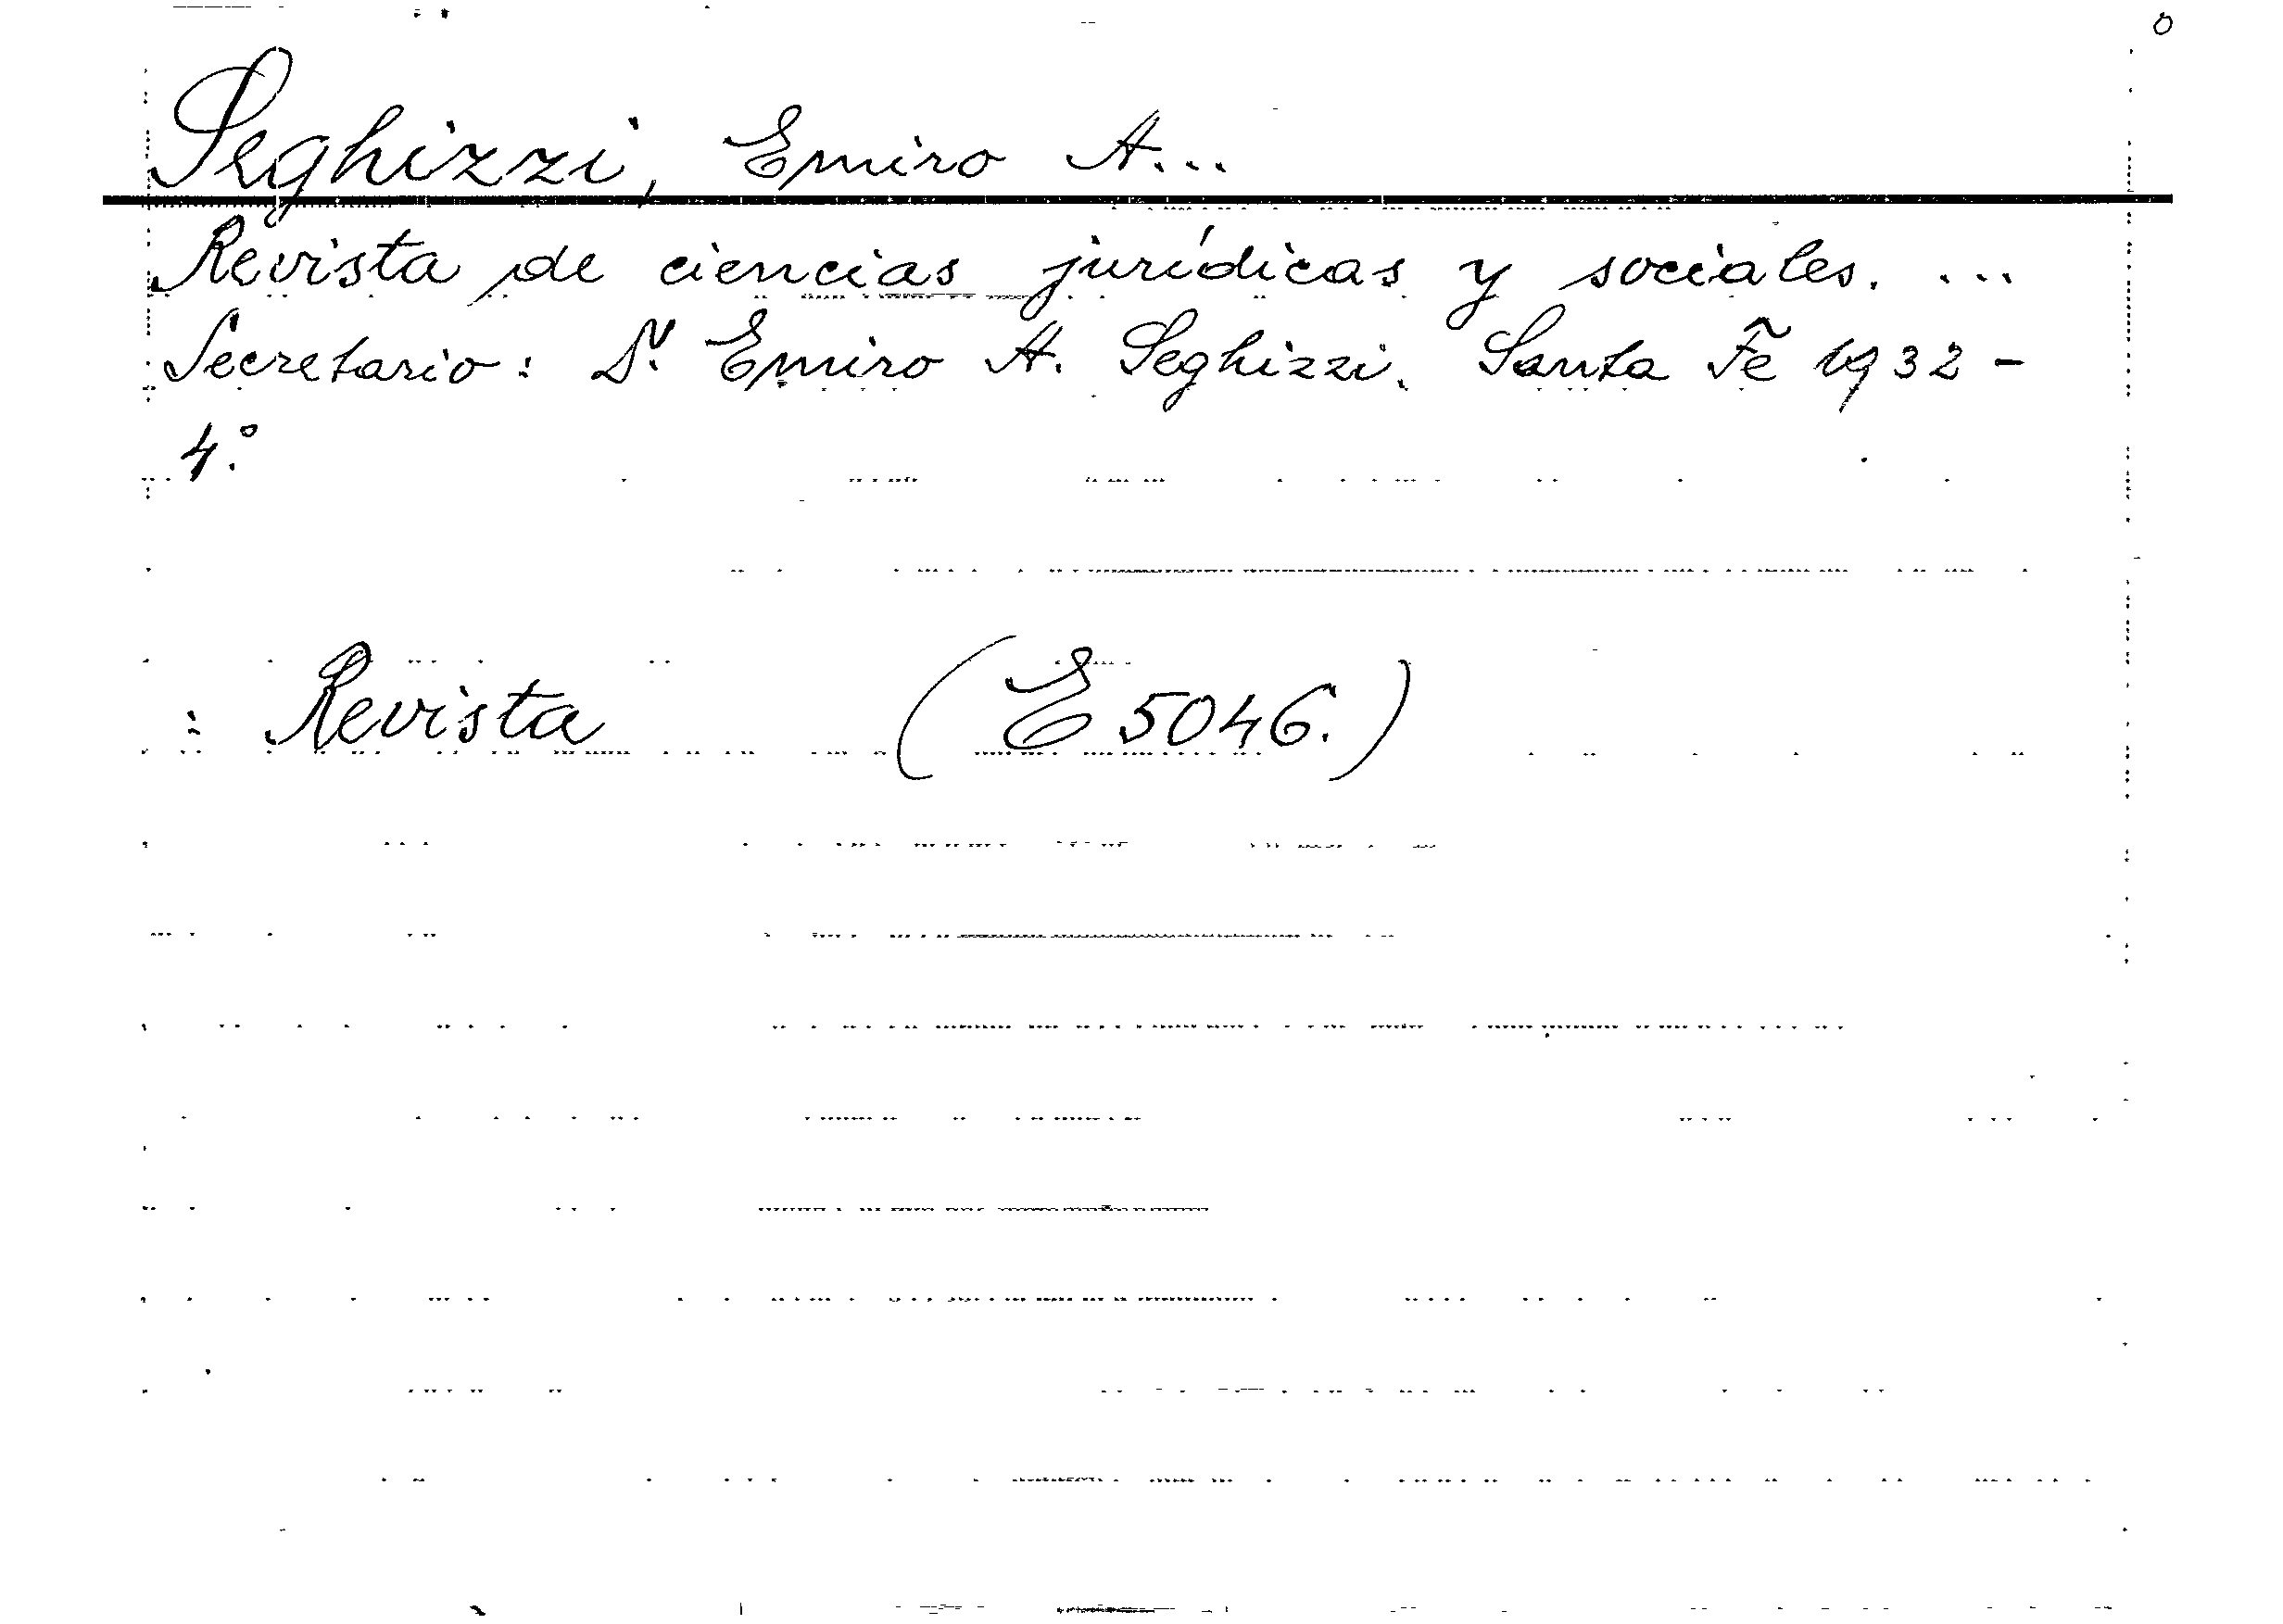 Seghizzi, Emiro A...
Revista de ciencias jurídicas y sociales. ...
Secretario: Dr. Emiro A. Seghizzi. Santa Fe 1932-
4.°
: Revista (E 5046.)